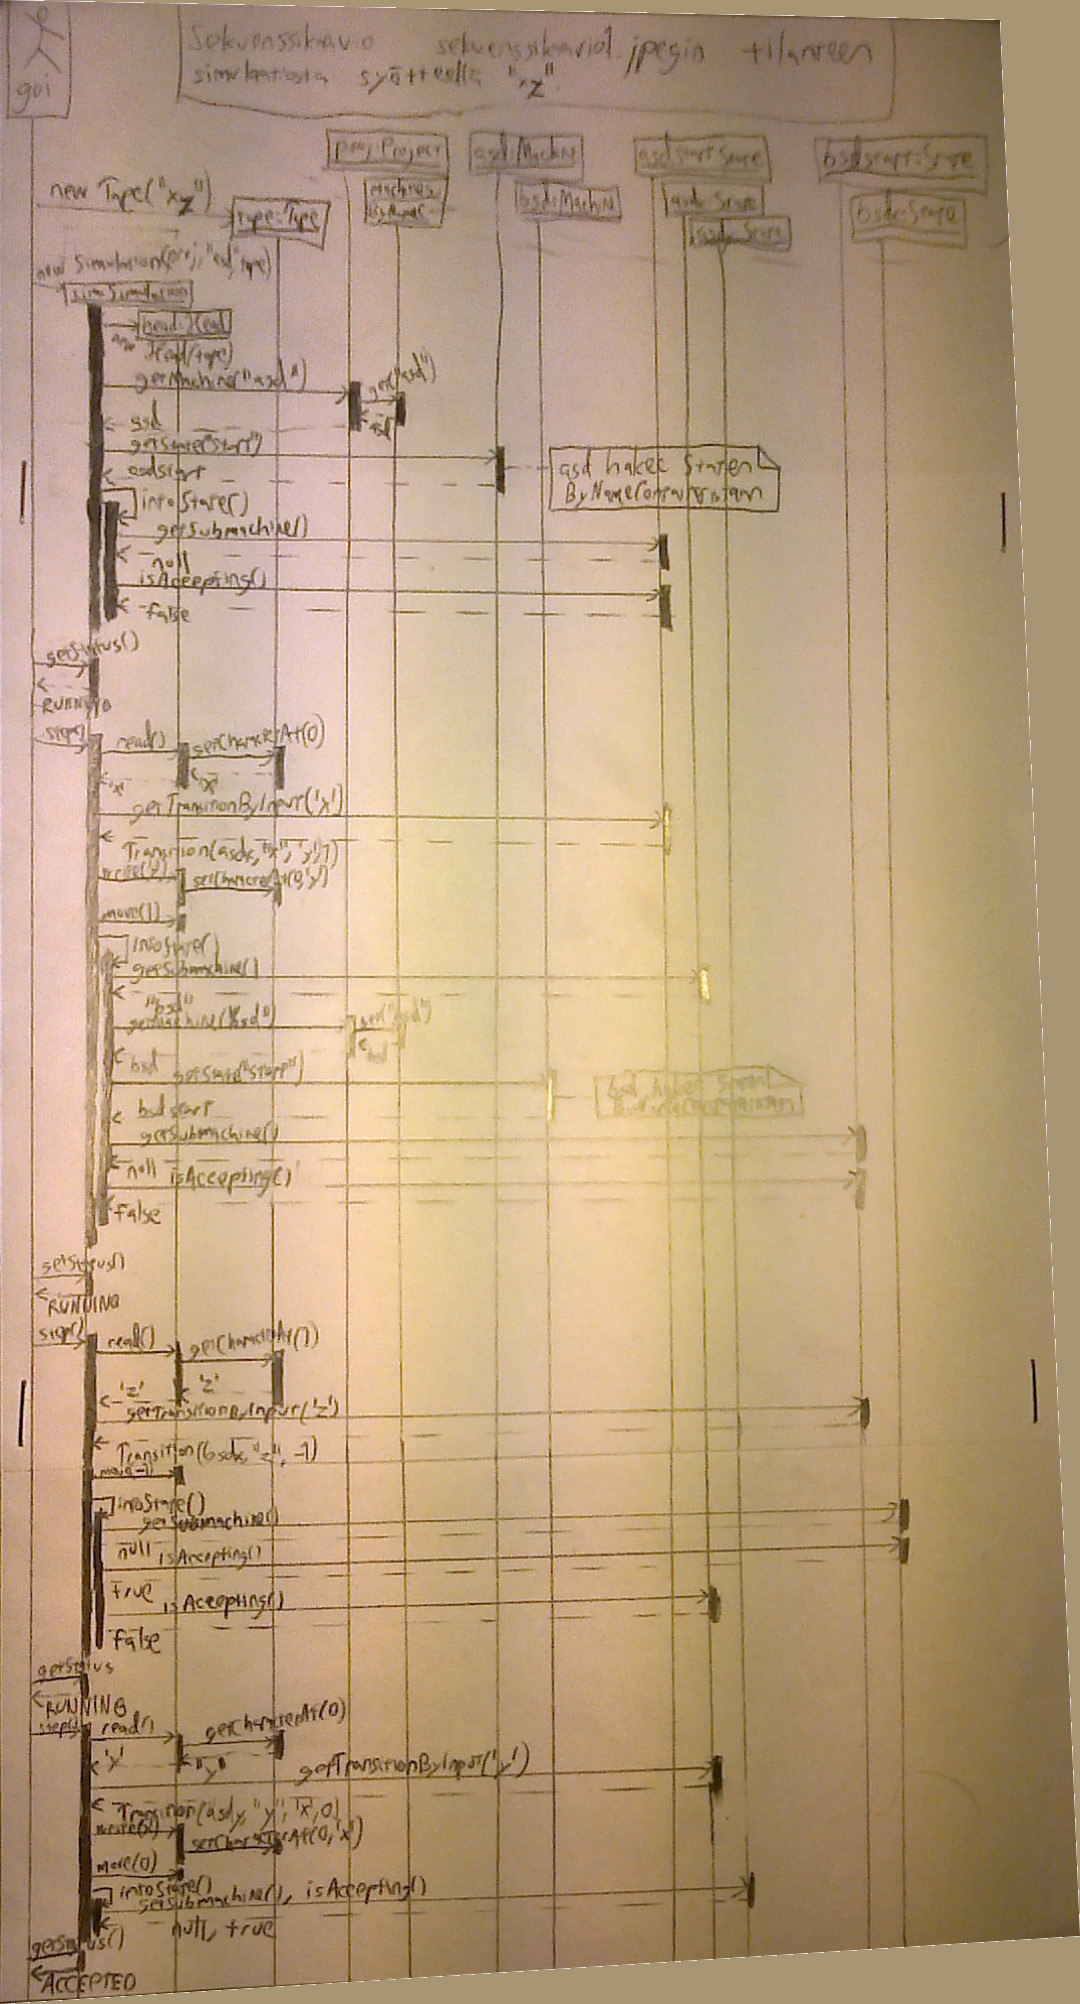 gui
Sekvenssikaavio sekvenssikaavio1.jpegin tilanteen
simulaatiosta syötteellä "xz".
proj:Project
asd:Machine
asdstart:State
bsdstart:State
machines
bsd:Machine
asdx:State
bsdx:State
asdy:State
new Tape("xz")
tape:Tape
new Simulation(proj, "asd", tape)
sim:Simulation
head:Head
new Head(tape)
getMachine("asd")
get("asd")
asd
asd
getState("start")
asdstart
asd hakee Staten
ByNameContaineristaan
intoState()
getSubmachine()
null
isAccepting()
false
getStatus()
RUNNING
step()
read()
getCharacterAt(0)
'x'
'x'
getTransitionByInput('x')
Transition(asdx, "x", 'y', 1)
write('y')
setCharacterAt(0,'y')
move(1)
intoState()
getSubmachine()
"bsd"
getMachine("bsd")
get("bsd")
bsd
bsd
getState("start")
bsd hakee Staten
bsdstart
getSubmachine()
null
isAccepting()
false
getStatus()
RUNNING
step()
read()
getCharacterAt(1)
'z'
'z'
getTransitionByInput('z')
Transition(bsdx, "z", -1)
move(-1)
intoState()
getSubmachine()
null
isAccepting()
true
isAccepting()
false
getStatus
RUNNING
step()
read()
getCharacterAt(0)
'y'
"y"
getTransitionByInput('y')
Transition(asdy, "y", 'x', 0)
write('x')
setCharacterAt(0,'x')
move(0)
intoState()
getSubmachine(), isAccepting()
null, true
getStatus()
ACCEPTED